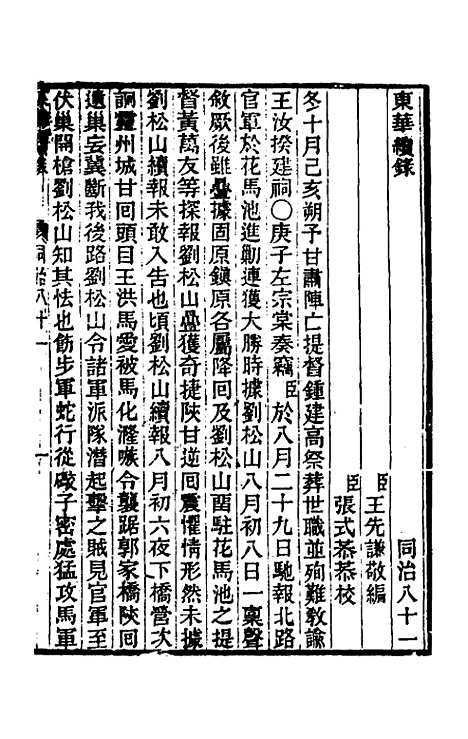 東華續錄
同治八十一
臣王先謙敬編
臣張式恭恭校
冬十月己亥朔予甘肅陣亡提督鍾建高祭葬世職並殉難敎諭
王汝揆建祠〇庚子左宗棠奏竊臣於八月二十九日馳報北路
官軍於花馬池進勦連獲大勝時據劉松山八月初八日一稟聲
敘厥後雖疊據固原鎭原各屬降囘及劉松山酉駐花馬池之提
督黃萬友等探報劉松山疊獲奇捷陝甘逆囘震懼情形然未據
劉松山續報未敢入告也頃劉松山續報八月初六夜下橋營次
詗靈州城甘囘頭目王洪馬愛被馬化漋嗾令襲踞郭家橋陝囘
遺巢妄冀斷我後路劉松山令諸軍派隊潛起擊之賊見官軍至
伏巢開槍劉松山知其怯也飭步軍蛇行從礮子密處猛攻馬軍
同治八十一